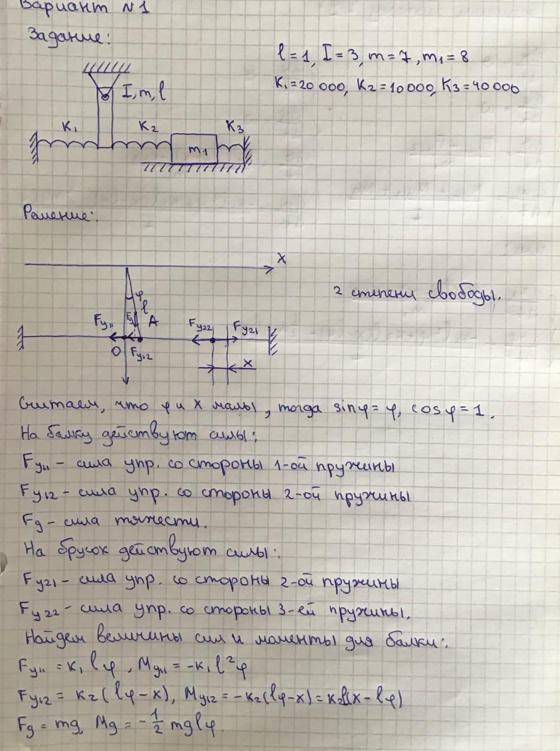 Вариант №1
Задание:
l=1, I=3, m=7, m₁=8
K₁=20 000, K₂=10 000, K₃=40 000
I, m, l
K₁ K₂ K₃
m₁
Решение:
X
2 степени свободы.
φ
l
Fу₁₁ Fg A Fу₂₂ Fу₂₁
O Fу₁₂
x
Считаем, что φ и x малы, тогда sinφ=φ, cosφ=1.
На балку действуют силы:
Fу₁₁ - сила упр. со стороны 1-ой пружины
Fу₁₂ - сила упр. со стороны 2-ой пружины
Fg - сила тяжести.
На брусок действуют силы:
Fу₂₁ - сила упр. со стороны 2-ой пружины
Fу₂₂ - сила упр. со стороны 3-ей пружины.
Найдем величины сил и моменты для балки:
Fу₁₁ = K₁lφ, Mу₁₁ = -K₁l²φ
Fу₁₂ = K₂(lφ-x), Mу₁₂ = -K₂(lφ-x) = K₂l(x-lφ)
Fg = mg, Mg = -1/2 mglφ.